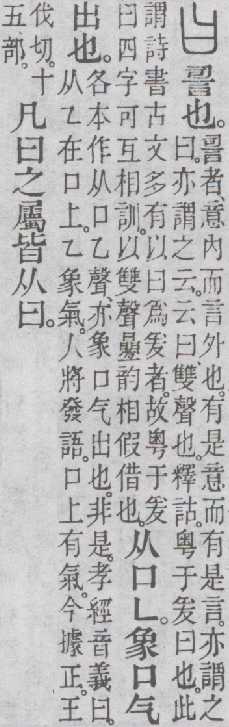 曰䛐也。
䛐者、意內而言外也。有是意而有是言。亦謂之
曰。亦謂之云。云曰雙聲也。釋詁。粵于爰曰也。此
謂詩書古文多有以曰爲爰者。故粵于爰
曰四字可互相訓。以雙聲曡韵相假借也。
从口乚。象口气
出也。
各本作从口乙聲。亦象口气出也。非是。孝經音義曰。
从乙在口上。乙象氣。人將發語。口上有氣。今據正。王
伐切。十
五部。
凡曰之屬皆从曰。